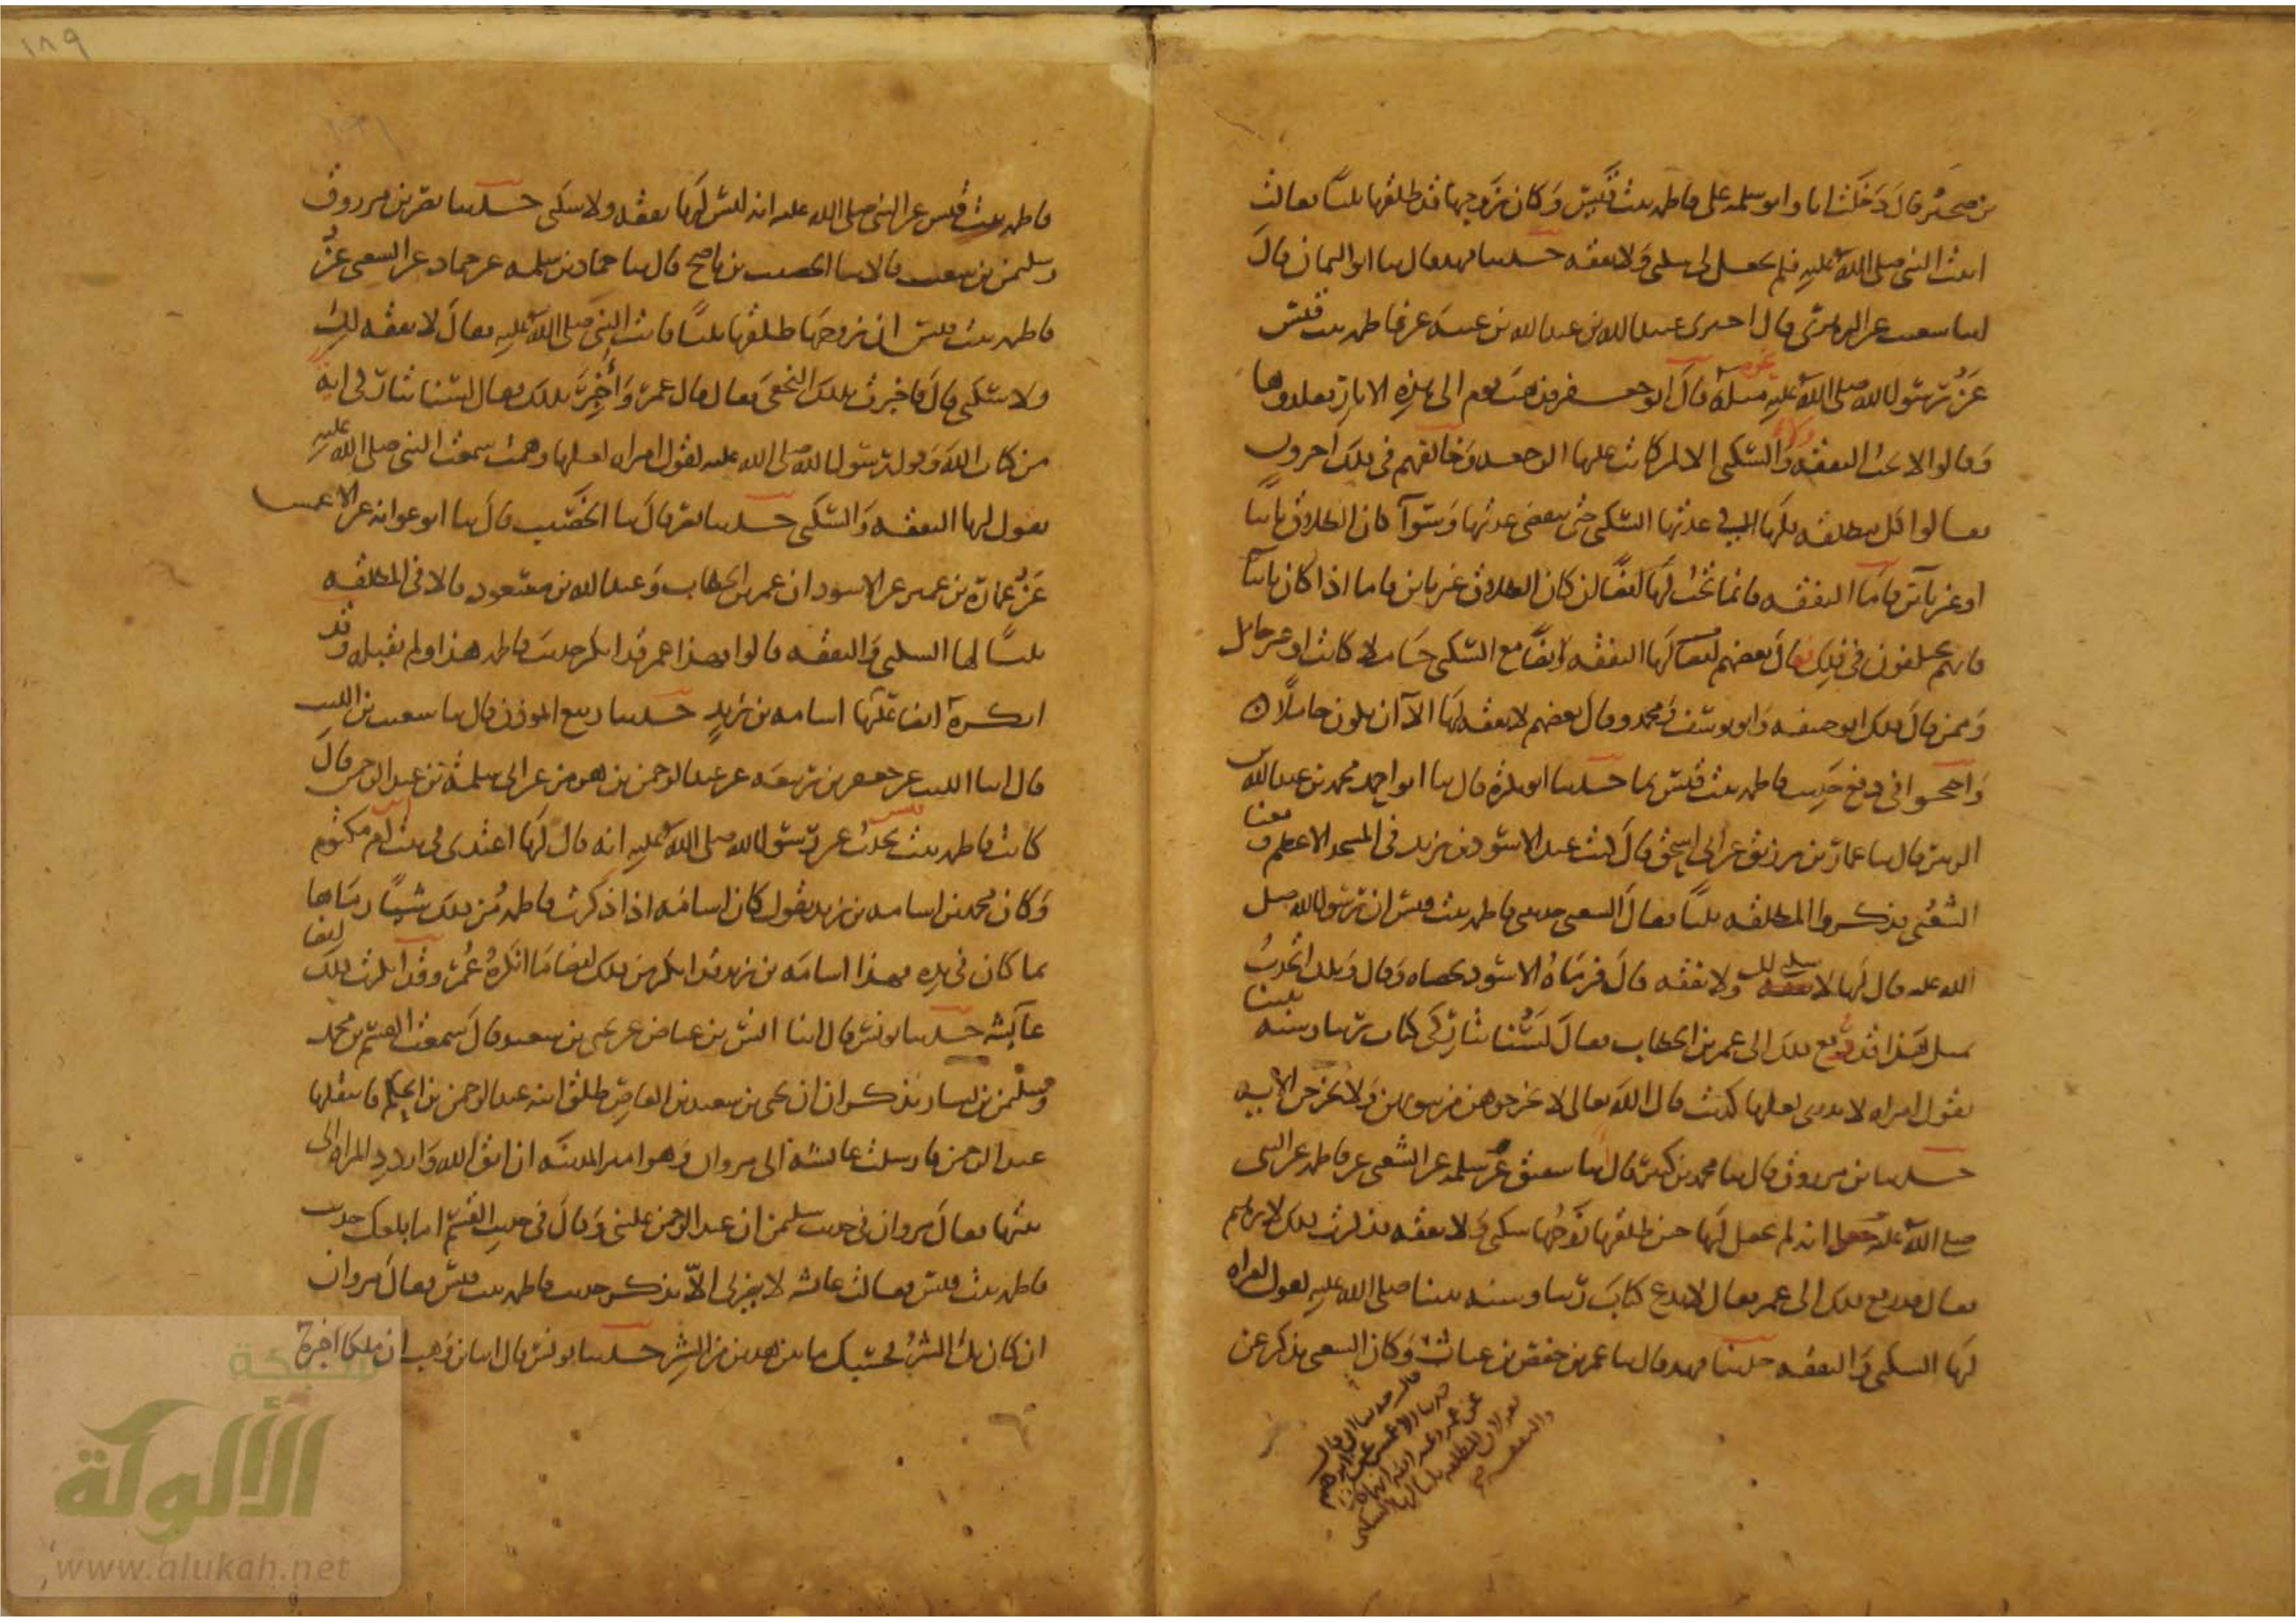 بن صخير قال دخلت انا وابو سلمه على فاطمه بنت قيس وكان زوجها قد طلقها ثلثا فقالت
اتيت النبى صلى الله عليه فلم يجعل لى سكنى ولا نفقه حدثنا فهد قال ثنا ابو اليمان قال
ثنا شعيب عن الزهرى قال اخبرنى عبيد الله بن عبد الله بن عتبه عن فاطمه بنت قيس
عن رسول الله صلى الله عليه مثله نحوه قال ابو جعفر فذهب قوم الى هذه الاثار فقلدوها
وقالوا لا تجب النفقه ولا السكنى الا لمن كانت عليها الرجعه وخالفهم فى ذلك اخرون
فقالوا كل مطلقه فلها فى عدتها السكنى حتى تنقضى عدتها وسوآ كان الطلاق باينا
او غير باين فاما النفقه فانما تجب لها ايضا ان كان الطلاق غير باين فاما اذا كان باينا
فانهم مختلفون فى ذلك فقال بعضهم لها النفقه ايضا مع السكنى حاملا كانت او غير حامل
وممن قال ذلك ابو حنيفه وابو يوسف ومحمد وقال بعضهم لا نفقه لها الا ان تكون حاملا
واحتجوا فى دفع حديث فاطمه بنت قيس بما حدثنا ابو بكره قال ثنا ابو احمد محمد بن عبد الله بن
الزبير قال ثنا عمار بن رزيق عن ابى اسحق قال كنت عند الاسود بن يزيد فى المسجد الاعظم ومعنا
الشعبى فذكروا المطلقه ثلثا فقال الشعبى حدثتنى فاطمه بنت قيس ان رسول الله صلى
الله عليه قال لها لا سكنى لك ولا نفقه قال فرماه الاسود بحصاه وقال ويلك اتحدث
بمثل هذا قد رفع ذلك الى عمر بن الخطاب فقال لسنا بتاركى كتاب ربنا وسنه نبينا
بقول امراه لا ندرى لعلها كذبت قال الله تعالى لا تخرجوهن من بيوتهن ولا يخرجن الايه
حدثنا بن مرزوق قال ثنا محمد بن كثير قال انا سفين عن سلمه عن الشعبى عن فاطمه عن النبى
صلى الله عليه انه لم يجعل لها حين طلقها زوجها سكنى ولا نفقه فذكرت ذلك لابرهيم
فقال قد رفع ذلك الى عمر فقال لا ندع كتاب ربنا وسنه نبينا صلى الله عليه لقول امراه
لها السكنى والنفقه حدثنا فهد قال ثنا عمر بن حفص بن غياث وكان الشعبى يذكر عن
قال حدثنا ابى قال
حدثنا الاعمش عن ابرهيم
عن عمر وعبد الله انهما كانا
يقولان المطلقه ثلثا لها السكنى
والنفقه
١٨٩
فاطمه بنت قيس عن النبى صلى الله عليه انه ليس لها نفقه ولا سكنى حدثنا نصر بن مرزوق
وسليمن بن شعيب قالا ثنا الخصيب بن ناصح قال ثنا حماد بن سلمه عن حماد عن الشعبى عن
فاطمه بنت قيس ان زوجها طلقها ثلثا فاتت النبى صلى الله عليه فقال لا نفقه لك
ولا سكنى قال فاخبرت بذلك النخعى فقال قال عمر واخبر بذلك فقال لسنا بتاركى ايه
من كتاب الله وقول رسول الله صلى الله عليه لقول امراه لعلها وهمت سمعت النبى صلى الله عليه
يقول لها النفقه والسكنى حدثنا نصر قال ثنا الخصيب قال ثنا ابو عوانه عن الاعمش
عن عماره بن عمير عن الاسود ان عمر بن الخطاب وعبد الله بن مسعود قالا فى المطلقه
ثلثا لها السكنى والنفقه قالوا فهذا عمر قد انكر حديث فاطمه هذا ولم يقبله وقد
انكره ايضا عليها اسامه بن زيد حدثنا ربيع الموذن قال ثنا شعيب بن الليث
قال ثنا الليث عن جعفر بن ربيعه عن عبد الرحمن بن هرمز عن ابى سلمه بن عبد الرحمن قال
كانت فاطمه بنت قيس تحدث عن رسول الله صلى الله عليه انه قال لها اعتدى فى بيت ابن ام مكتوم
وكان محمد بن اسامه بن زيد يقول كان اسامه اذا ذكرت فاطمه من ذلك شيئا رماها
بما كان فى يده فهذا اسامه بن زيد قد انكر من ذلك ايضا ما انكره عمر وقد انكرت ذلك ايضا
عائشه حدثنا يونس قال انا انس بن عياض عن يحيى بن سعيد قال سمعت القسم بن محمد
وسليمن بن يسار يذكران ان يحيى بن سعيد بن العاص طلق ابنه عبد الرحمن بن الحكم فانتقلها
عبد الرحمن فارسلت عائشه الى مروان وهو امير المدينه ان اتق الله واردد المراه الى
بيتها فقال مروان فى حديث سليمن ان عبد الرحمن غلبنى وقال فى حديث القسم اما بلغك حديث
فاطمه بنت قيس فقالت عائشه لا يضرك الا تذكر حديث فاطمه بنت قيس فقال مروان
ان كان بك الشر فحسبك ما بين هذين من الشر حدثنا يونس قال انا بن وهب ان ملكا اخبره
شبكة
الألوكة
www.alukah.net